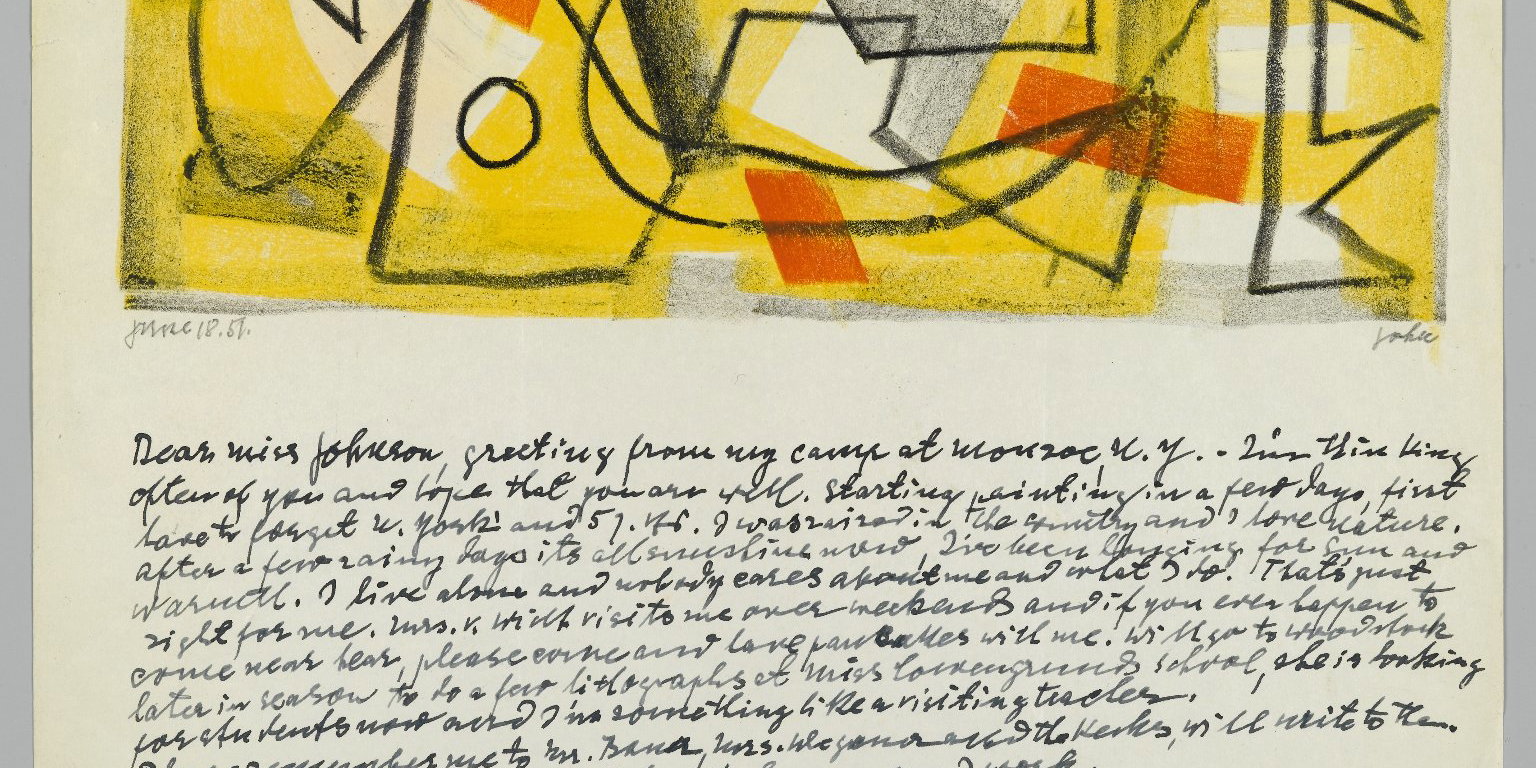 June 18.51.
John
Dear miss Johnson, greeting from my camp at Monroe, N.Y. - I'm thinking
often of you and hope that you are well. Starting painting in a few days, first
have to forget N. York and 57. I was raised in the country and I love nature.
after a few rainy days its all sunshine now, I've been longing for sun and
warmth. I live alone and nobody cares about me and what I do. That's just
right for me. Mrs. v. Wicht visits me over weekends and if you ever happen to
come near hear, please come and have pancakes with me. Will go to woodstock
later in season to do a few lithographs at Miss Lowengrunds school, she is looking
for students now and I'm something like a visiting teacher.
remember me to Mr. Baur, Mrs. and the Kecks, will write to them.